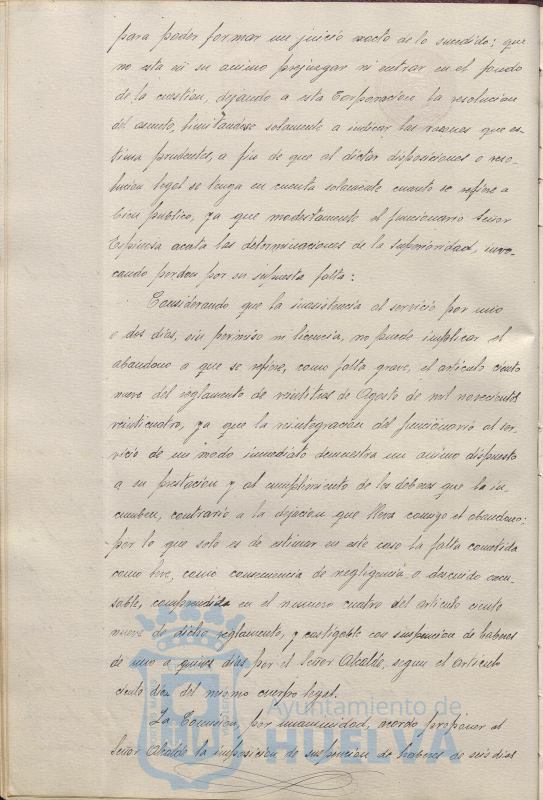 para poder formar un juicio exacto de lo sucedido; que
no esta ni su animo prejuzgar ni entrar en el fondo
de la cuestion, dejando a esta Corporacion la resolucion
del asunto, limitandose solamente a indicar las razones que es-
tima prudentes, a fin de que al dictar disposiciones o reso-
lucion legal se tenga en cuenta solamente cuanto se refiere a
bien publico, ya que modestamente el funcionario Señor
Espinosa acata las determinaciones de la Superioridad, invo-
cando perdon por su supuesta falta:
Considerando que la inasistencia al servicio por uno
o dos dias, sin permiso ni licencia, no puede implicar el
abandono a que se refiere, como falta grave, el articulo ciento
nueve del reglamento de veintitres de Agosto de mil novecientos
veinticuatro, ya que la reintegracion del funcionario al ser-
vicio de un modo inmediato demuestra un animo dispuesto
a su prestacion y al cumplimiento de los deberes que la in-
cumben, contrario a la dejacion que lleva consigo el abandono;
por lo que solo es de estimar en este caso la falta cometida
como leve, como consecuencia de negligencia o descuido excu-
sable, comprendida en el numero cuatro del articulo ciento
nueve de dicho reglamento, y castigable con suspension de haberes
de uno a quince dias por el Señor Alcalde, segun el articulo
ciento diez del mismo cuerpo legal.
La Comision, por unanimidad, acordo proponer al
Señor Alcalde la imposicion de suspension de haberes de seis dias
Ayuntamiento de
HUELVA